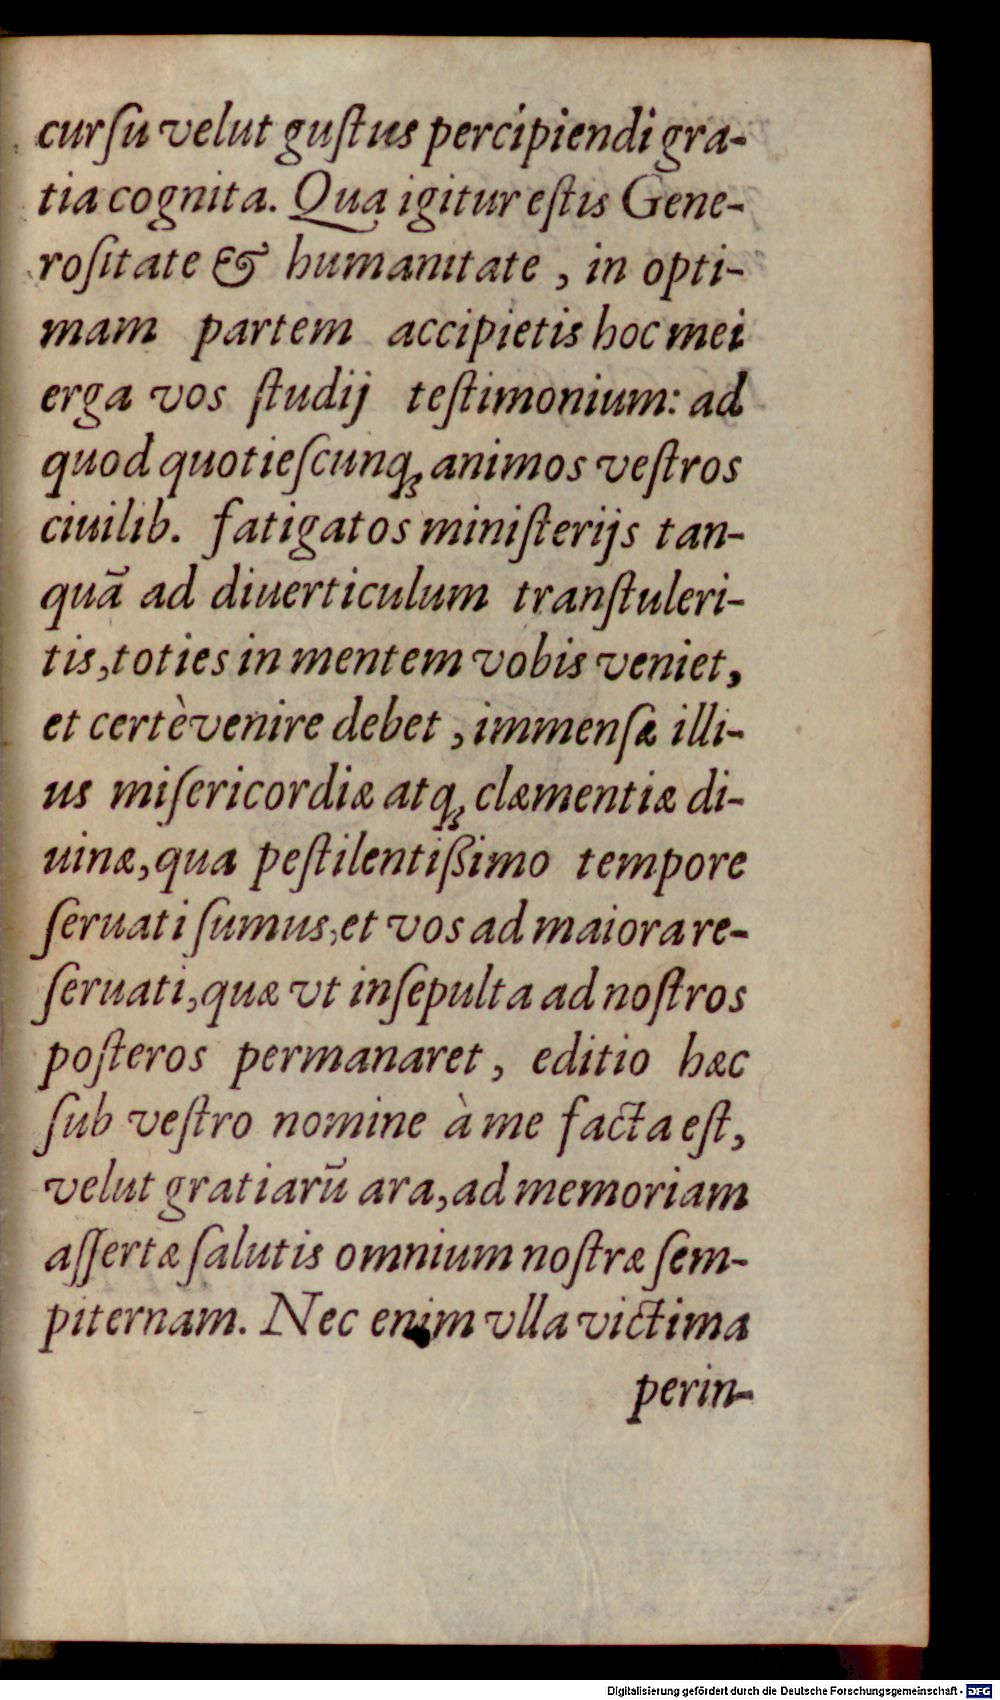 curſu velut guſtus percipiendi gra-
tia cognita. Qua igitur eſtis Gene-
roſitate & humanitate, in opti-
mam partem accipietis hoc mei
erga vos ſtudij teſtimonium: ad
quod quotieſcunq̃ animos veſtros
ciuilib. fatigatos miniſterijs tan-
quã ad diuerticulum tranſtuleri-
tis, toties in mentem vobis veniet,
et certè venire debet, immenſæ illi-
us miſericordiæ atq̃ clæmentiæ di-
uinæ, qua peſtilentißimo tempore
ſeruati ſumus, et vos ad maiora re-
ſeruati, quæ vt inſepulta ad noſtros
poſteros permanaret, editio hæc
ſub veſtro nomine à me facta eſt,
velut gratiarũ ara, ad memoriam
aſſertæ ſalutis omnium noſtræ ſem-
piternam. Nec enim vlla victima
perin-
Digitalisierung gefördert durch die Deutsche Forschungsgemeinschaft - DFG